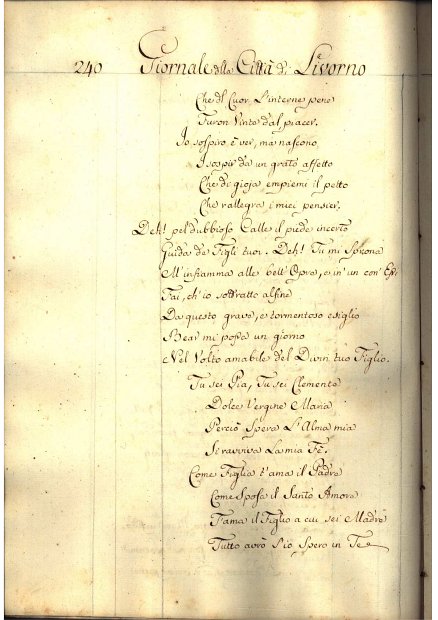 240 Giornale della Città di Livorno
Che dl Cuor L'interne pene
Furon Vinte dal piacer.
Io sospiro è ver, ma nascono
I sospir da un grato affetto
Che di gioja empiemi il petto
Che rallegra i miei pensier.
Deh! pel dubbioso Calle il piede incerto
Guida de' Figli tuoi. Deh! Tu mi sprona
M'infiamma alle bell'Opre, e in un con'
Fai, ch'io sottratto alfine
Da questo grave, e tormentoso esiglio
Bear mi possa un giorno
Nel Volto amabile del Divin tuo Figlio.
Tu sei Pia, Tu sei Clemente
Dolce Vergine Maria
Perciò Spera L'Alma mia
Si ravviva La mia Fè.
Come Figlia t'ama il Padre
Come Sposa il Santo Amore
T'ama il Figlio a cui sei Madre
Tutto avrò S'io Spero in Te